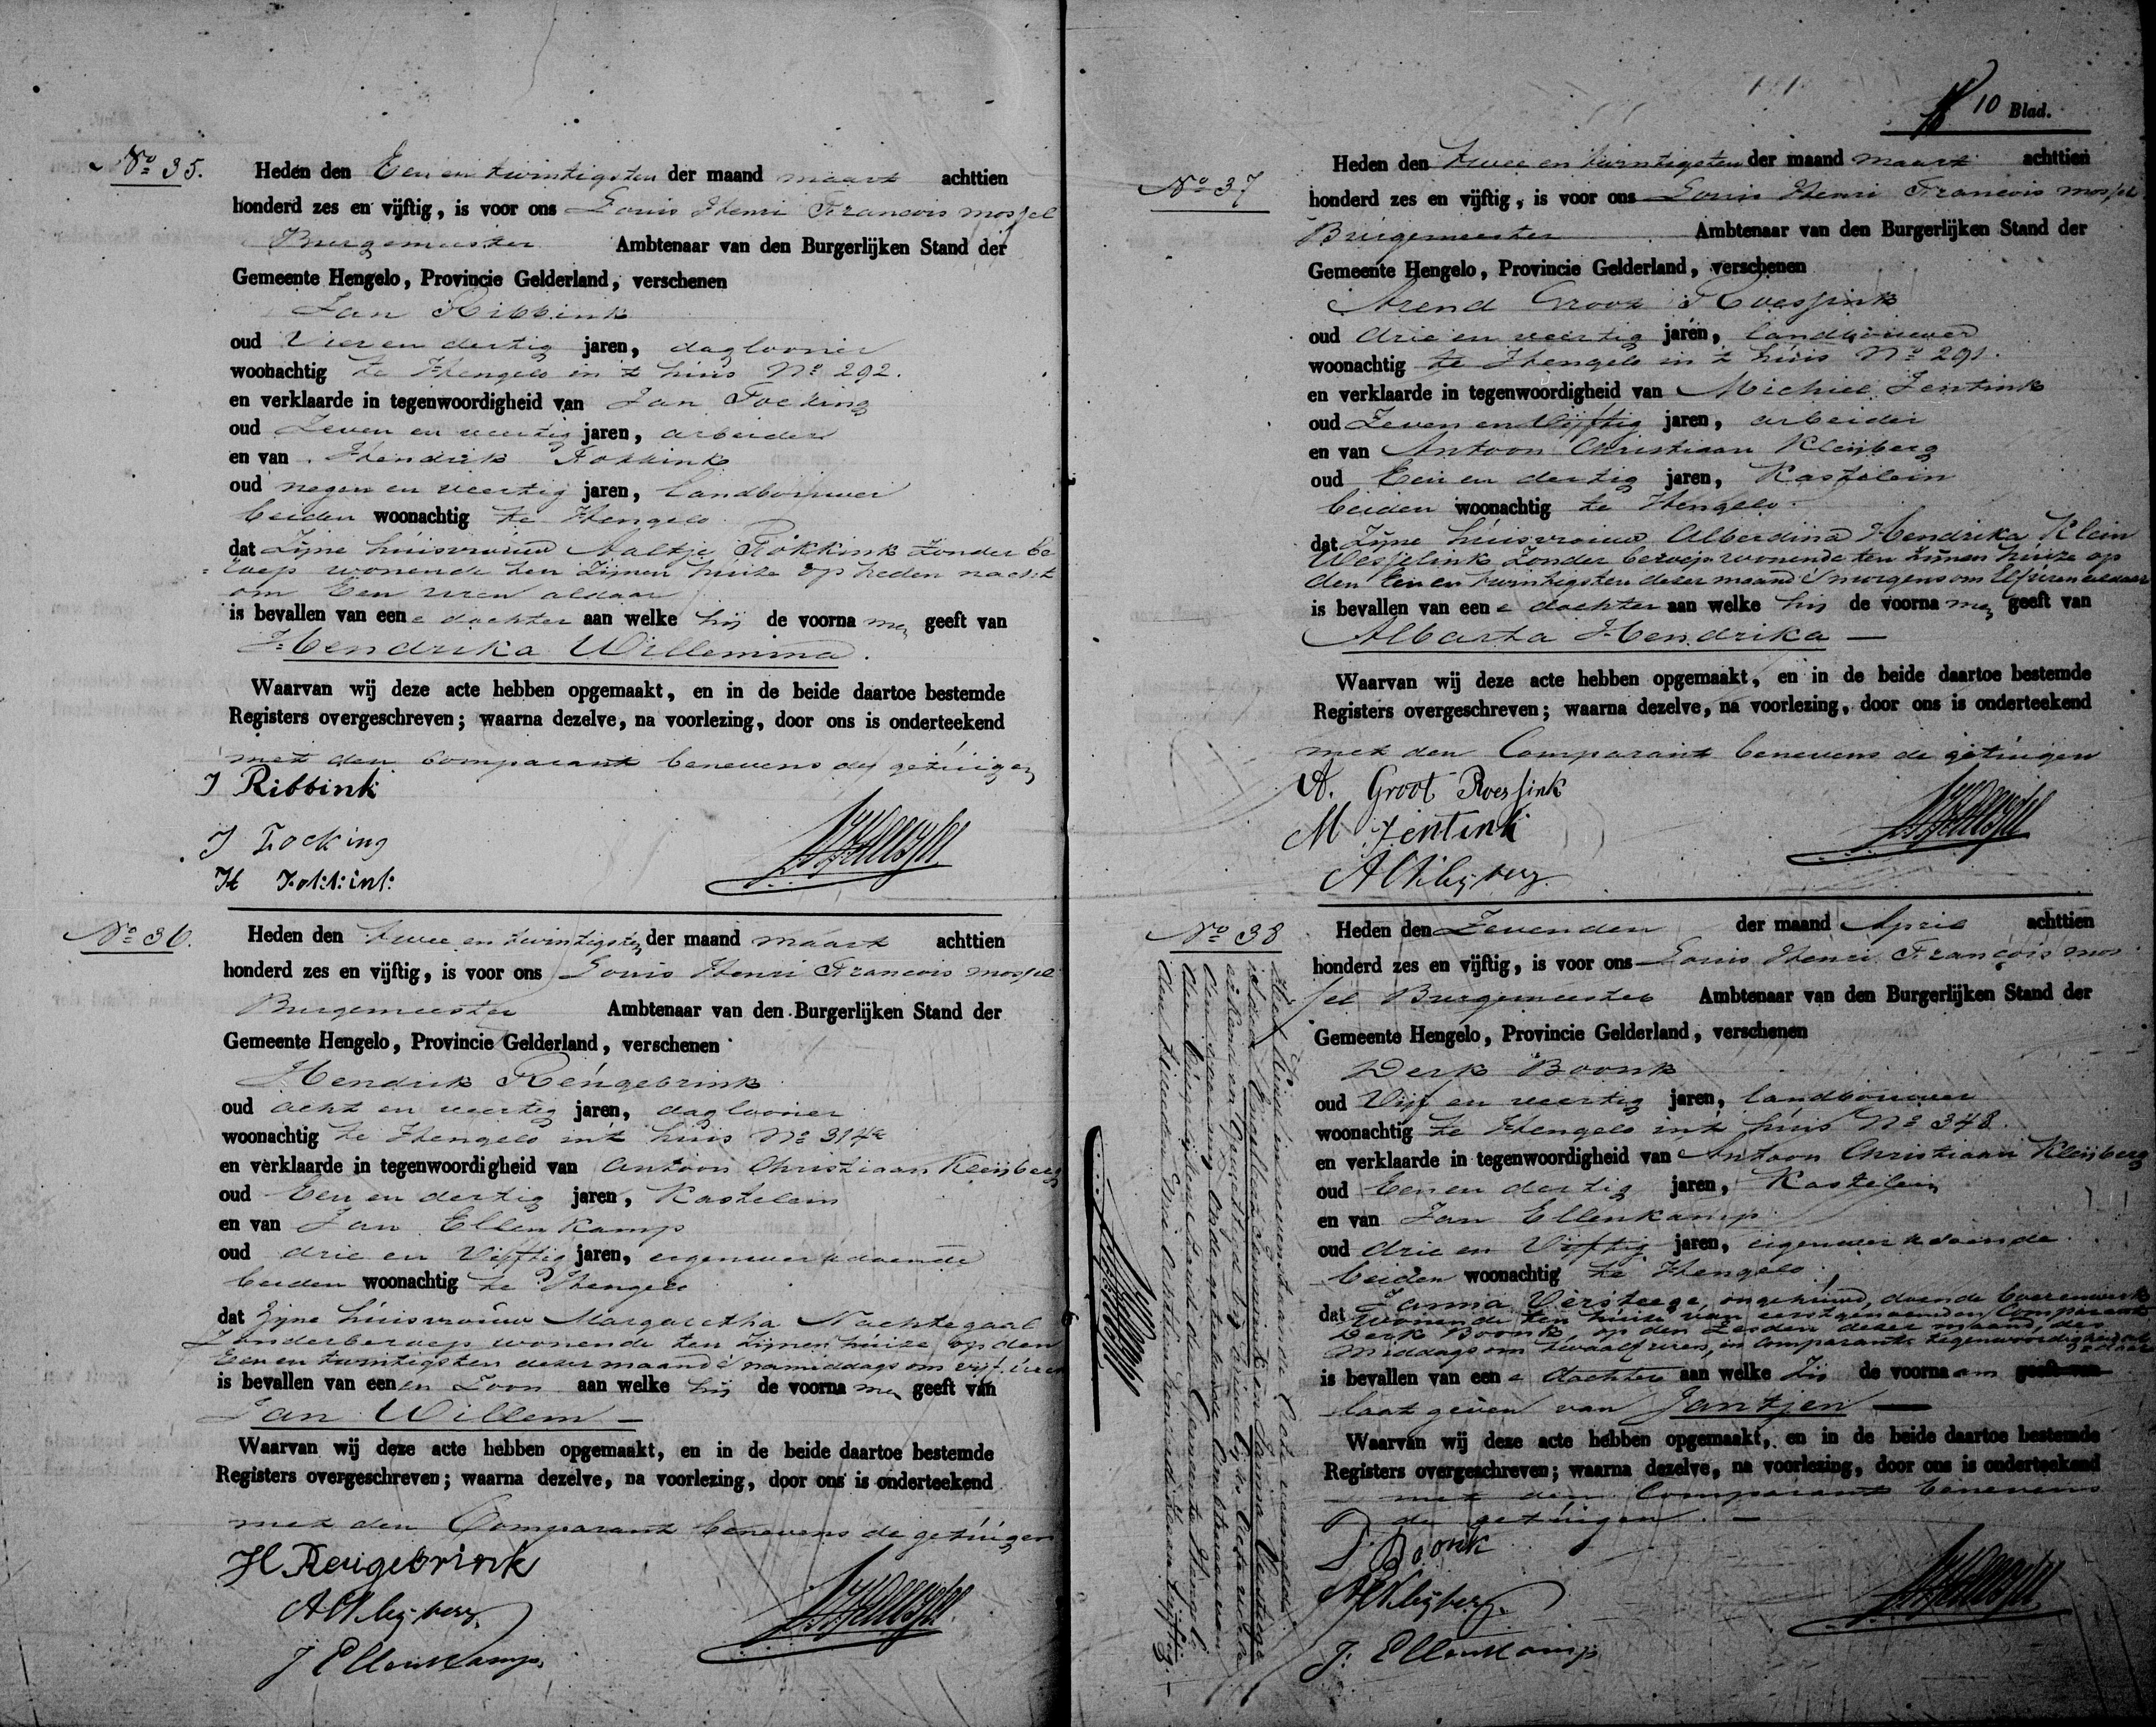 No 35.
Heden den Een en twintigsten der maand maart achttien
honderd zes en vijftig, is voor ons Louis Henri Francois Mossel
Burgemeester Ambtenaar van den Burgerlijken Stand der
Gemeente Hengelo, Provincie Gelderland, verschenen
Jan Ribbink
oud Vier en dertig jaren, daglooner
woonachtig te Hengelo in 't huis No 292.
en verklaarde in tegenwoordigheid van Jan Focking
oud Zeven en veertig jaren, arbeider
en van Hendrik Fokkink
oud negen en veertig jaren, landbouwer
beiden woonachtig te Hengelo
dat Zijne huisvrouw Aaltje Fokkink Zonder be
roep wonende ten Zijnen huize op heden nacht
om Een uren aldaar
is bevallen van eene dochter aan welke hij de voornamen geeft van
Hendrika Willemina.
Waarvan wij deze acte hebben opgemaakt, en in de beide daartoe bestemde
Registers overgeschreven; waarna dezelve, na voorlezing, door ons is onderteekend
met den Comparant benevens de getuigen
J Ribbink
J Focking
H Fokkink
No 36.
Heden den twee en twintigsten der maand maart achttien
honderd zes en vijftig, is voor ons Louis Henri Francois Mossel
Burgemeester Ambtenaar van den Burgerlijken Stand der
Gemeente Hengelo, Provincie Gelderland, verschenen
Hendrik Reugebrink
oud acht en veertig jaren, daglooner
woonachtig te Hengelo in 't huis No 314a
en verklaarde in tegenwoordigheid van Antoon Christiaan Kleijberg
oud Een en dertig jaren, Kastelein
en van Jan Ellenkamp
oud drie en Vijftig jaren, eigenwerkdoende
beiden woonachtig te Hengelo
dat Zijne huisvrouw Margaretha Nachtegaal
Zonder beroep wonende ten Zijnen huize op den
Een en twintigsten dezer maand 's namiddags om vijf uren
is bevallen van eenen Zoon aan welke hij de voornamen geeft van
Jan Willem —
Waarvan wij deze acte hebben opgemaakt, en in de beide daartoe bestemde
Registers overgeschreven; waarna dezelve, na voorlezing, door ons is onderteekend
met den Comparant benevens de getuigen
H Reugebrink
A C Kleijberg
J Ellenkamp
10 Blad.
No 37
Heden den twee en twintigsten der maand maart achttien
honderd zes en vijftig, is voor ons Louis Henri Francois Mossel
Burgemeester Ambtenaar van den Burgerlijken Stand der
Gemeente Hengelo, Provincie Gelderland, verschenen
Arend Groot Roessink
oud drie en veertig jaren, landbouwer
woonachtig te Hengelo in 't huis No 291.
en verklaarde in tegenwoordigheid van Michiel Jentink
oud Zeven en Vijftig jaren, arbeider
en van Antoon Christiaan Kleijberg
oud Een en dertig jaren, Kastelein
beiden woonachtig te Hengelo
dat Zijne huisvrouw Alberdina Hendrika Klein
Wesselink Zonder beroep wonende ten Zijnen huize op
den Een en twintigsten dezer maand 's morgens om Elf uren aldaar
is bevallen van eene dochter aan welke hij de voornamen geeft van
Albarta Hendrika —
Waarvan wij deze acte hebben opgemaakt, en in de beide daartoe bestemde
Registers overgeschreven; waarna dezelve, na voorlezing, door ons is onderteekend
met den Comparant benevens de getuigen
A. Groot Roessink
M Jentink
A C Kleijberg
No 38
Heden den Zevenden der maand April achttien
honderd zes en vijftig, is voor ons Louis Henri François Mos
sel Burgemeester Ambtenaar van den Burgerlijken Stand der
Gemeente Hengelo, Provincie Gelderland, verschenen
Derk Boonk
oud Vijf en veertig jaren, landbouwer
woonachtig te Hengelo in 't huis No 348.
en verklaarde in tegenwoordigheid van Antoon Christiaan Kleijberg
oud Een en dertig jaren, Kastelein
en van Jan Ellenkamp
oud drie en Vijftig jaren, eigenwerkdoende
beiden woonachtig te Hengelo
dat Janna Versteege, ongehuwd, doende boerenwerk
wonende ten huize van eerstgenoemden Comparant
Derk Boonk, op den Zesden dezer maand, des
middags om twaalf uren, in Comparants tegenwoordigheid aldaar
is bevallen van eene dochter aan welke Zij de voornaam geeft van
laat geven van Jantjen —
Waarvan wij deze acte hebben opgemaakt, en in de beide daartoe bestemde
Registers overgeschreven; waarna dezelve, na voorlezing, door ons is onderteekend
met den Comparant benevens
de getuigen. —
D. Boonk
A C Kleijberg.
J. Ellenkamp